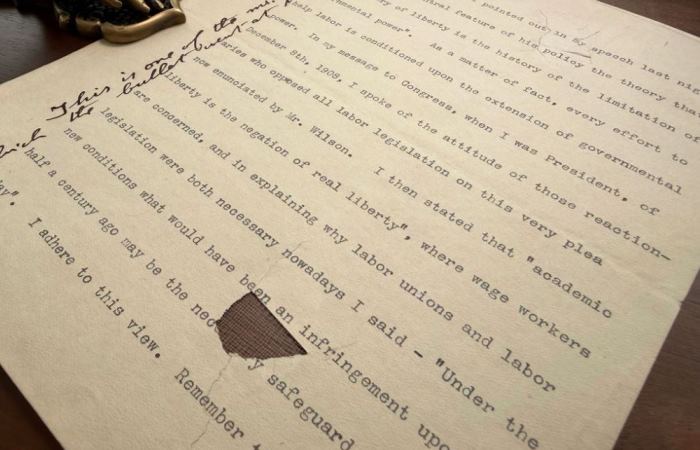 pointed out in my speech last nig
tral feature of his policy the theory tha
ry of liberty is the history of the limitation of
nmental power". As a matter of fact, every effort to
help labor is conditioned upon the extension of governmental
power. In my message to Congress, when I was President, of
December 8th, 1908, I spoke of the attitude of those reaction-
aries who opposed all labor legislation on this very plea
now enunciated by Mr. Wilson. I then stated that "academic
liberty is the negation of real liberty", where wage workers
are concerned, and in explaining why labor unions and labor
legislation were both necessary nowadays I said - "Under the
new conditions what would have been an infringement upo
half a century ago may be the nec y safeguard
day". I adhere to this view. Remember t
This is one of the
the bullet went